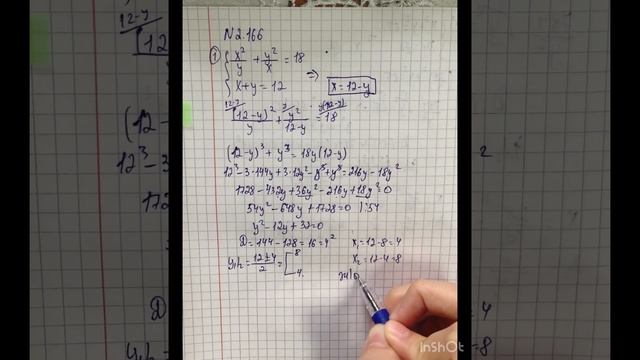 N2.166
1) { x²/y + y²/x = 18
{ x+y = 12 => x = 12-y
(12-y)²/y + y²/(12-y) = 18
(12-y)³ + y³ = 18y(12-y)
12³ - 3·144y + 3·12y² - y³ + y³ = 216y - 18y²
1728 - 432y + 36y² - 216y + 18y² = 0
54y² - 648y + 1728 = 0 | :54
y² - 12y + 32 = 0
D = 144 - 128 = 16 = 4²
y₁,₂ = (12±4)/2 = [ 8
4
x₁ = 12-8 = 4
x₂ = 12-4 = 8
InShOt